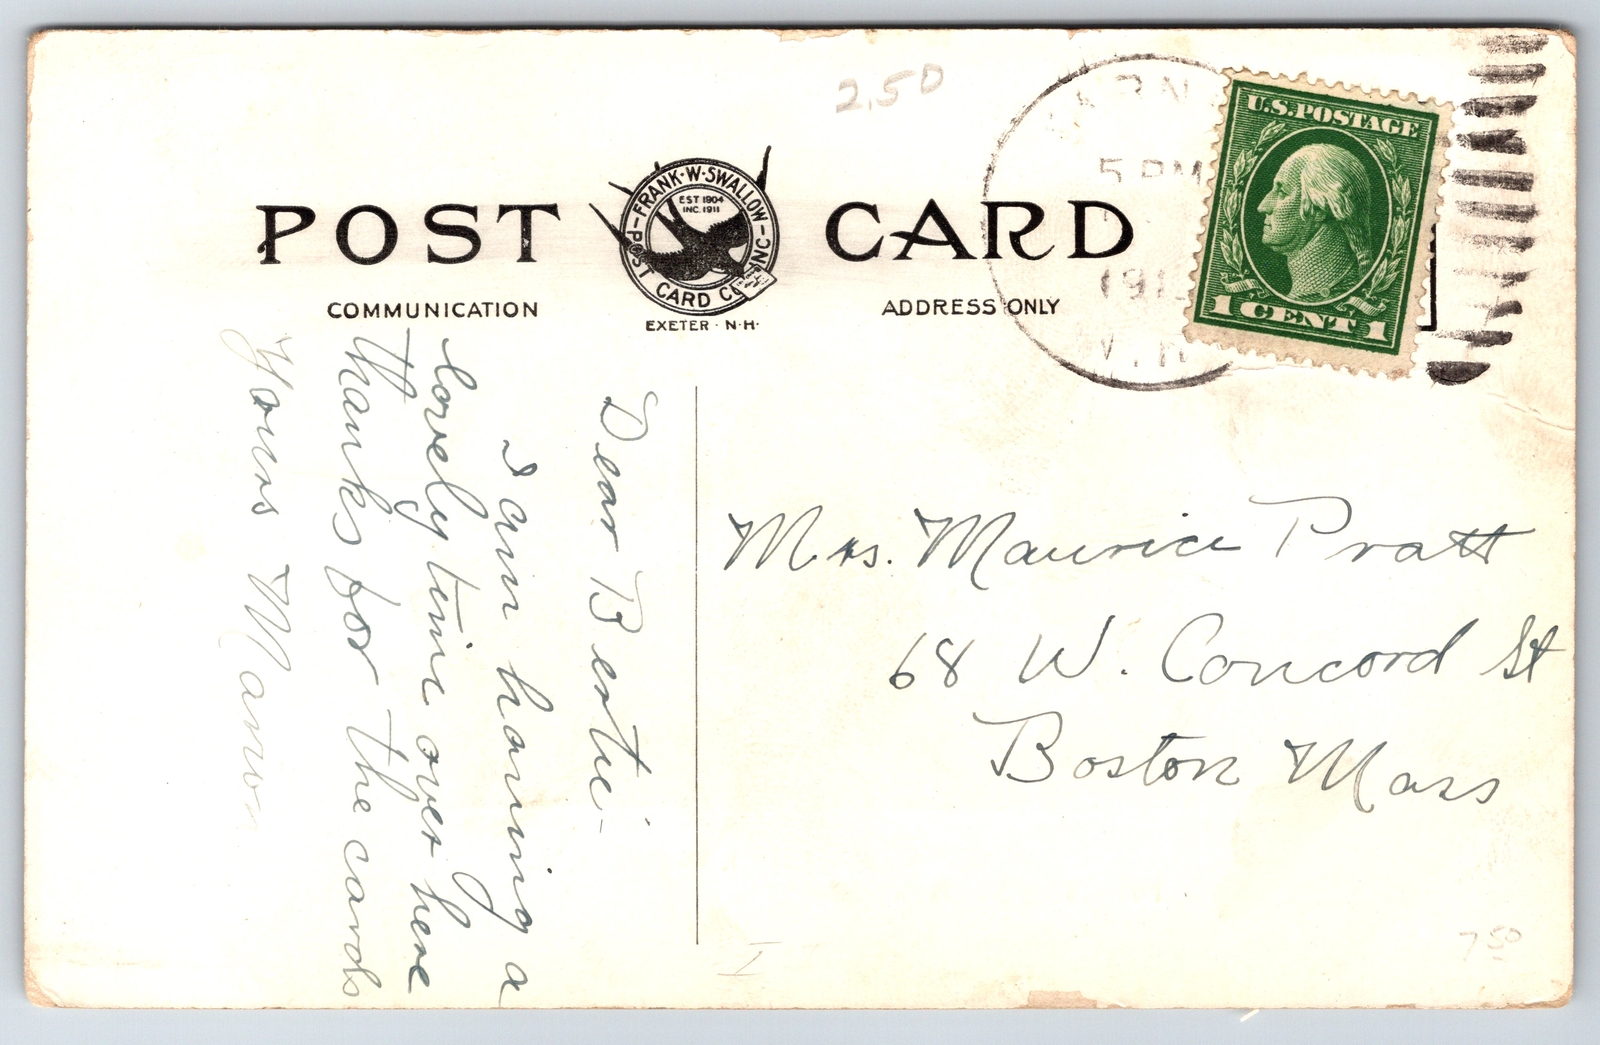 2.50
5 PM
U.S. POSTAGE
1 CENT 1
POST CARD
FRANK·W·SWALLOW
POST CARD CO. INC
EST 1904
INC. 1911
EXETER · N·H·
COMMUNICATION
ADDRESS ONLY
Dear Bertie -
I am having a
lovely time over here
thanks for the cards
Yours Marion
Mrs. Maurice Pratt
68 W. Concord St
Boston Mass
I
7 50